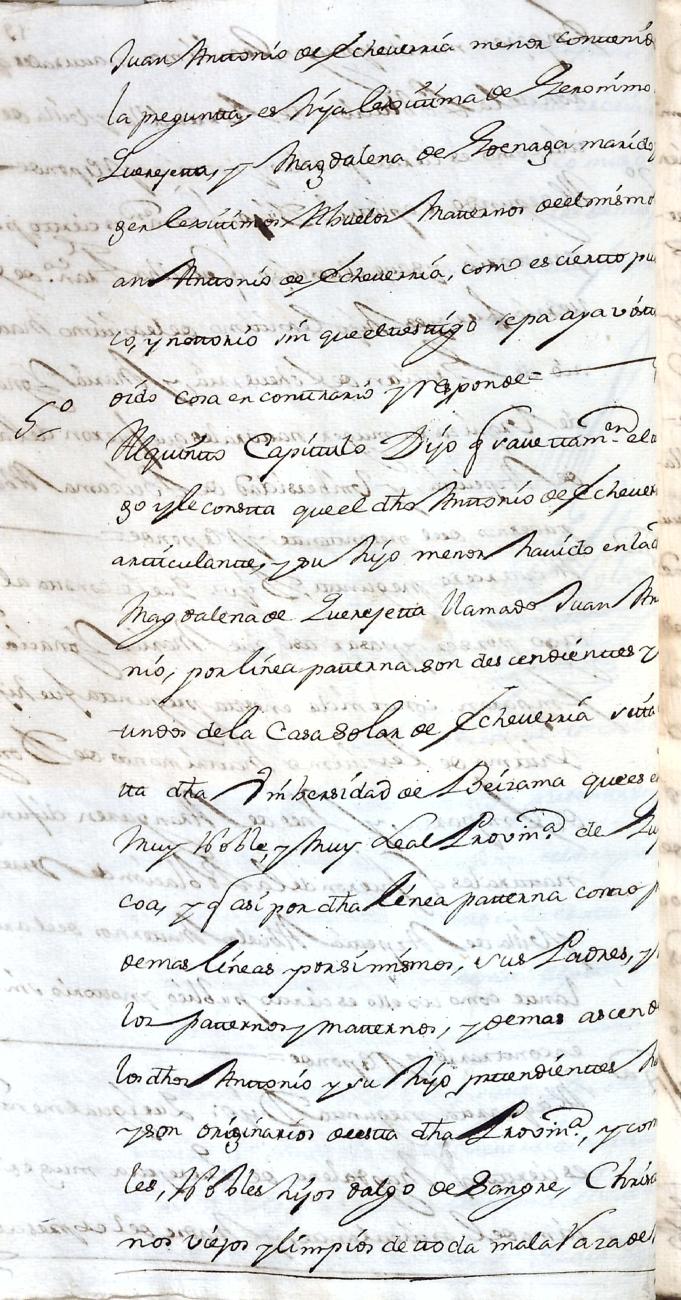 Juan Anttonio de Echeverria menor contenid
la pregunta, es hija lexitima de Geronimo
Querejetta, y Magdalena de Goenaga marido y
ger lexitimos Abuelos Matternos de el mismo
an Anttonio de Echeverria, como es ciertto pu
co, y nottorio sin que el testigo sepa aya vistto
oido cosa en contrario y responde=
5º Al quintto Capitulo Dijo q save ttamn el
go y le constta que el dho Anttonio de Echever
artticulantte, y su hijo menor havido en la d
Magdalena de Querejetta llamado Juan An
nio, por linea patterna son descendienttes y
undos de la Casa Solar de Echeverria sitta
tta dha Vnibersidad de Beizama que es e
Muy Noble, y Muy Leal Provina de Gui
coa, y q asi por dha linea patterna como p
demas lineas y por si mismos, sus Padres, y
los patternos y matternos, y demas ascend
los dhos Anttonio y su hijo prettendienttes h
y son originarios de estta dha Provina, y com
les, Nobles hijos dalgo de Sangre, Christ
nos viejos y limpios de ttoda mala Raza de